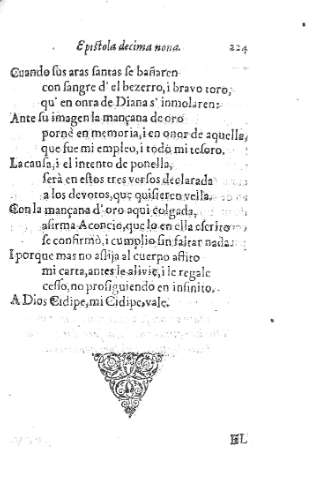 Epistola decima nona. 224
Cuando sus aras santas se bañaren
con sangre d'el bezerro, i bravo toro,
qu'en onra de Diana s'inmolaren:
Ante su imagen la mançana de oro
pornè en memoria, i en onor de aquella,
que fue mi empleo, i todo mi tesoro.
La causa, i el intento de ponella,
serà en estos tres versos declarada
a los devotos, que quisieren vella.
Con la mançana d'oro aqui colgada,
afirma Aconcio, que lo en ella escrito
se confirmò, i cumplio sin faltar nada.
I porque mas no aflija al cuerpo aflito
mi carta, antes le alivie, i le regale
cesso, no prosiguiendo en infinito.
A Dios Cidipe, mi Cidipe, vale.
EL